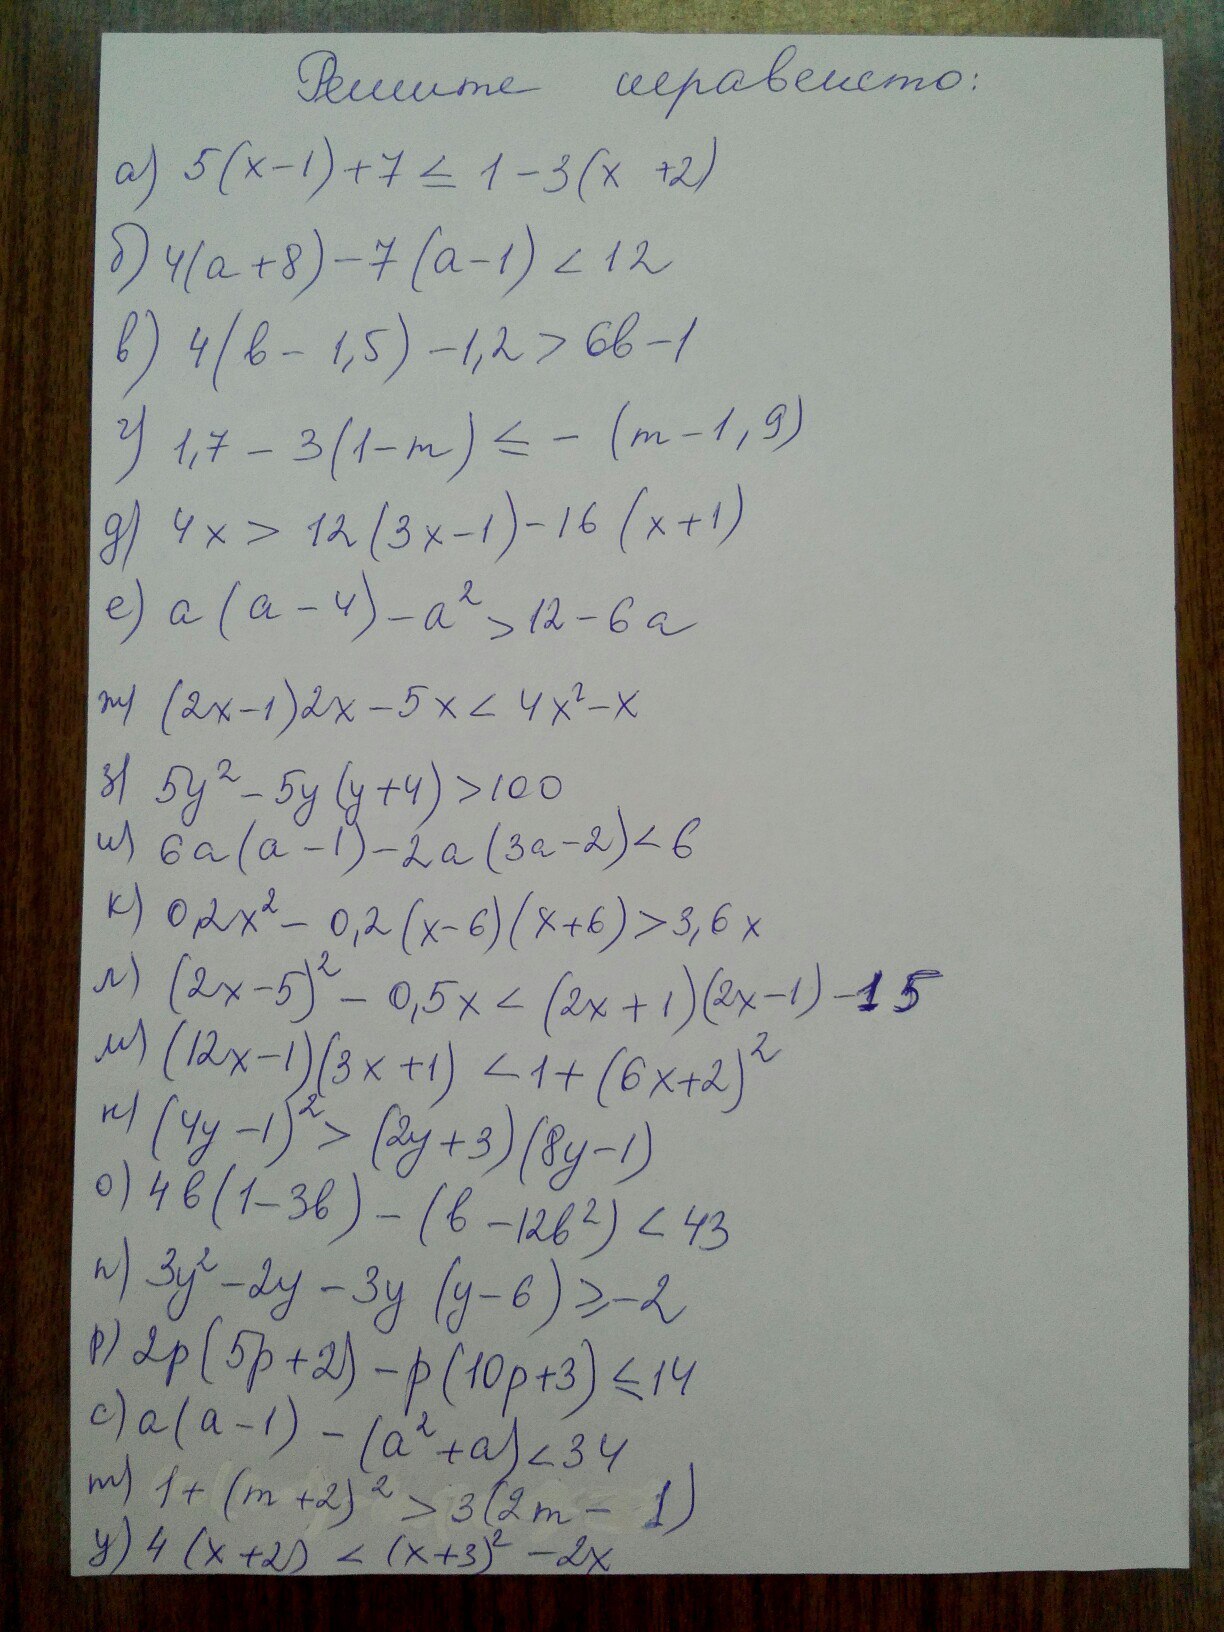 Решите неравенсто:
а) 5(x-1)+7 ≤ 1-3(x +2)
б) 4(a+8)-7(a-1) < 12
в) 4(в - 1,5) -1,2 > 6в-1
г) 1,7 - 3(1-m) ≤ - (m-1,9)
д) 4x > 12(3x-1)-16(x+1)
е) a(a-4)-a² > 12-6a
ж) (2x-1)2x-5x < 4x²-x
з) 5y²-5y(y+4) > 100
и) 6a(a-1)-2a(3a-2) < 6
к) 0,2x² - 0,2(x-6)(x+6) > 3,6x
л) (2x-5)² - 0,5x < (2x+1)(2x-1)-15
м) (12x-1)(3x+1) < 1+(6x+2)²
н) (4y-1)² > (2y+3)(8y-1)
о) 4в(1-3в) - (в-12в²) < 43
п) 3y²-2y-3y(y-6) ≥ -2
р) 2p(5p+2)-p(10p+3) ≤ 14
с) a(a-1) - (a²+a) < 34
т) 1+(m+2)² > 3(2m- 1)
у) 4(x+2) < (x+3)²-2x